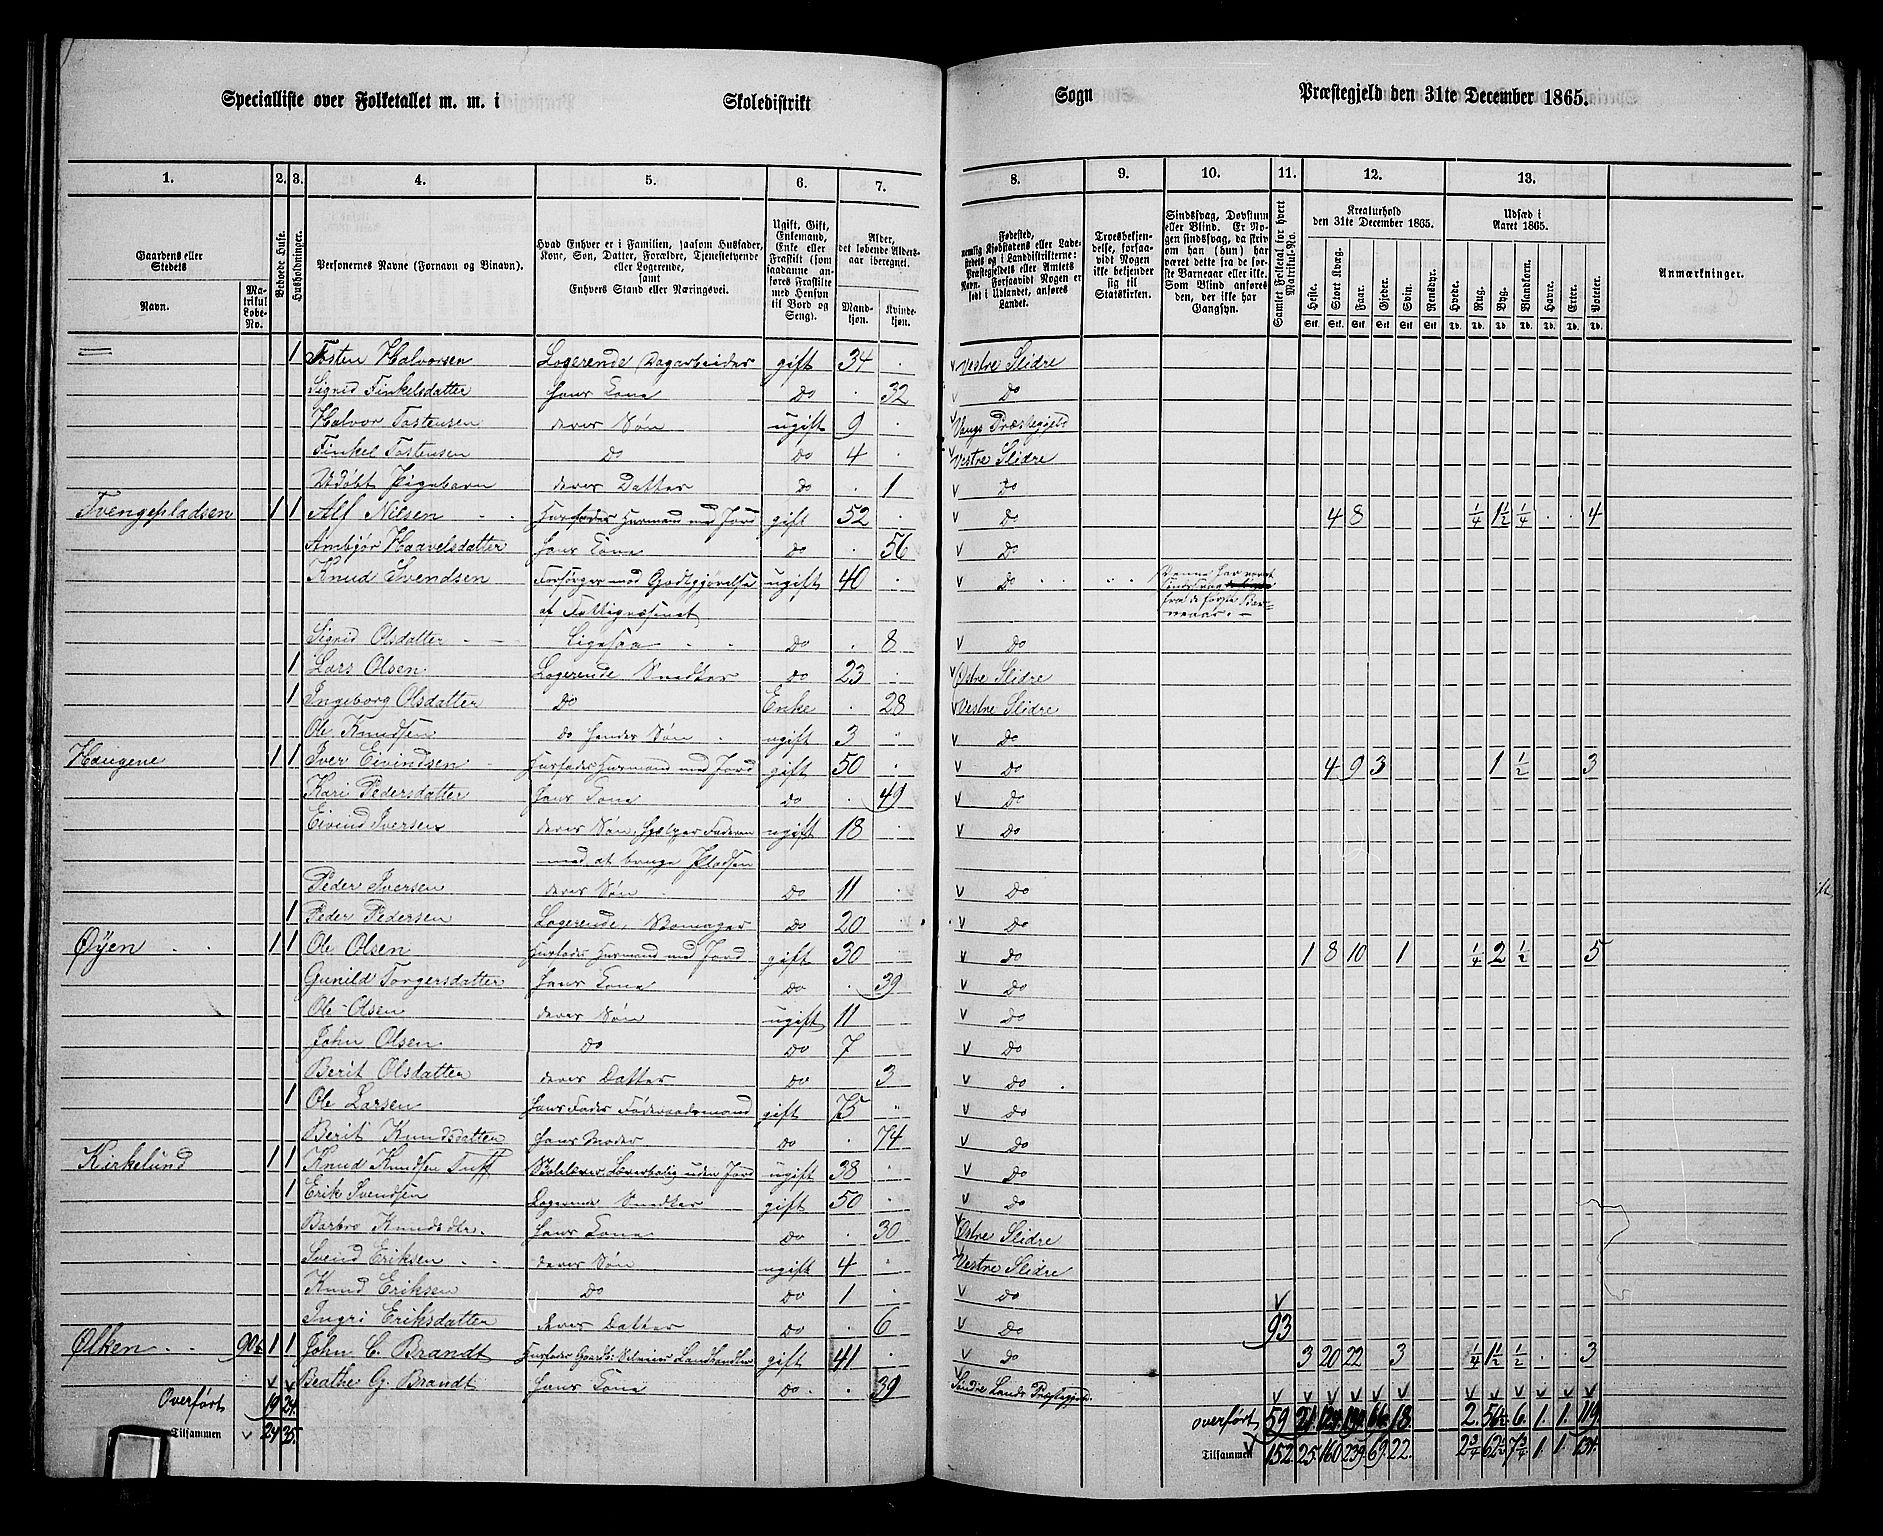 Specialliste over Folketallet m. m. i Skoledistrikt Sogn Præstegjeld den 31te December 1865.
1. 2. 3. 4. 5. 6. 7. 8. 9. 10. 11. 12. 13.
Gaardens eller Stedets
Navn.
Matrikul Løbe-No.
Beboede Huse.
Husholdninger.
Personernes Navne (Fornavn og Binavn).
Hvad Enhver er i Familien, saasom Husfader, Kone, Søn, Datter, Forældre, Tjenestetyende eller Logerende, samt Enhvers Stand eller Næringsvei.
Ugift, Gift, Enkemand, Enke eller Fraskilt (som saadanne anføres Fraskilte med Hensyn til Bord og Seng).
Alder, det løbende Aldersaar iberegnet.
Mandkjøn. Kvindekjøn.
Fødested, nemlig Kjøbstadens eller Ladestedets og i Landdistrikterne: Præstegjeldets eller Amtets Navn. Forsaavidt Nogen er født i Udlandet, anføres Landet.
Troesbekjendelse, forsaavidt Nogen ikke bekjender sig til Statskirken.
Sindssvag, Døvstum eller Blind. Er Nogen sindssvag, da skrives om han (hun) har været dette fra de første Barneaar eller ikke. Som Blind anføres den, der ikke har Gangsyn.
Samlet Folketal for hvert Matrikul-No.
Kreaturhold den 31te December 1865.
Heste. Stort Kvæg. Faar. Gjeder. Svin. Rensdyr.
Udsæd i Aaret 1865.
Hvede. Rug. Byg. Blandkorn. Havre. Erter. Poteter.
Anmærkninger.
1 Tosten Halvorsen Logerende Dagarbeider gift 34 Vestre Slidre
Sigrid Finkelsdatter hans Kone do 32 do
Halvor Tostensen deres Søn ugift 9 Vangs Præstegjeld
Finkel Tostensen do do 4 Vestre Slidre
Udøbt Pigebarn deres Datter do 1 do
Tvengepladsen 1 1 Alf Nilsen Husfader Husmand med Jord gift 52 do 4 8 1/4 1 1/2 1/4 4
Ambjør Haavelsdatter hans Kone do 56 do
Knud Svendsen Forsørges mod Godtgjørelse ugift 40 do Denne har været Sindssvag fra de første Barneaar.
af Fattigvæsenet
Sigrid Olsdatter Ligesaa do 8 do
1 Lars Olsen Logerende Snedker do 23 Østre Slidre
1 Ingeborg Olsdatter do Enke 28 Vestre Slidre
Ole Knudsen do hendes Søn ugift 3 do
Haugene 1 1 Iver Eivindsen Husfader Husmand med Jord gift 50 do 4 9 3 1 1/2 3
Kari Pedersdatter hans Kone do 49 do
Eivind Iversen deres Søn, hjelper Faderen ugift 18 do
med at bruge Pladsen
Peder Iversen deres Søn do 11 do
1 Peder Pedersen Logerende, Skomager do 20 do
Øyen 1 1 Ole Olsen Husfader Husmand med Jord gift 30 do 1 8 10 1 1/4 2 1/2 5
Gunild Torgersdatter hans Kone do 39 do
Ole Olsen deres Søn ugift 11 do
John Olsen do do 7 do
Berit Olsdatter deres Datter do 3 do
1 Ole Larsen hans Fader Føderaadsmand gift 75 do
Berit Knudsdatter hans Moder do 74 do
Kirkelund 1 1 Knud Knudsen Tuff Skolelærer Lærerbolig uden Jord ugift 38 do
1 Erik Svendsen Logerende Snedker gift 50 do
Barbro Knudsdtr. hans Kone do 30 Østre Slidre
Svend Eriksen deres Søn ugift 4 Vestre Slidre
Knud Eriksen do do 1 do
Ingri Eriksdatter deres Datter do 6 do 93
Ølken 90 1 1 John C. Brandt gift 41 do 3 20 22 3 1/4 1 1/2 1/2 3
Beathe G. Brandt hans Kone do 39 Søndre Lands Præstegjeld
Overført 19 24 overført 59 21 66 18 2 56 1/2 6 1 1 119
Tilsammen 24 35 Tilsammen 152 25 160 239 69 22 2 3/4 62 1/2 7 3/4 1 1 134